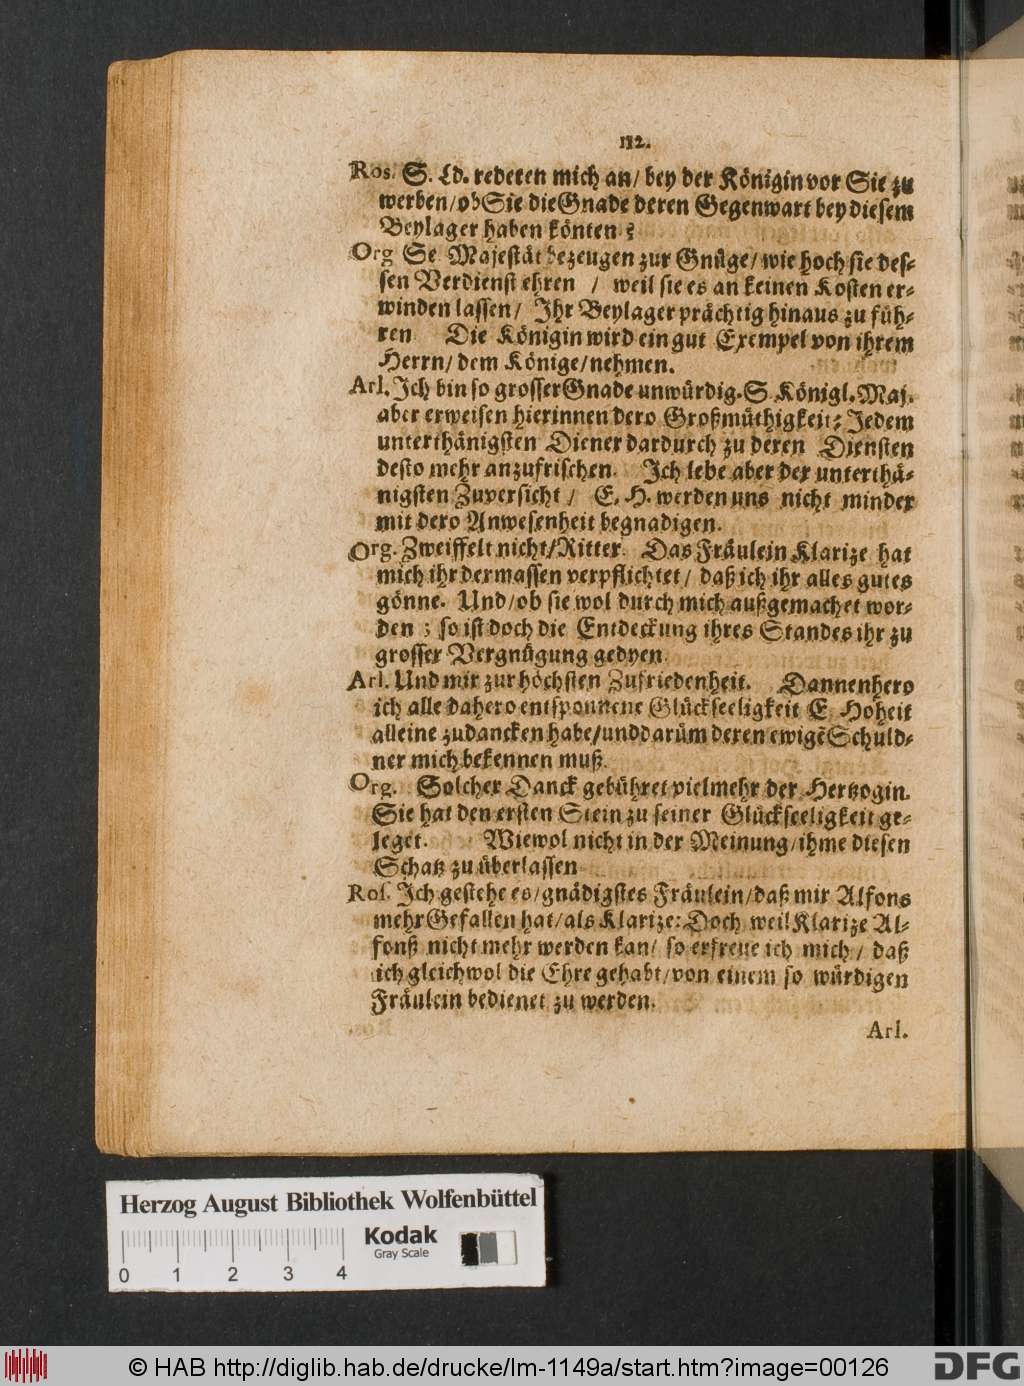 112.
Ros. S. Ld. redeten mich an/ bey der Königin vor Sie zu
werben/ ob Sie die Gnade deren Gegenwart bey diesem
Beylager haben könten?
Org Se Majestät bezeugen zur Gnüge/ wie hoch sie des-
sen Verdienst ehren / weil sie es an keinen Kosten er-
winden lassen/ Ihr Beylager prächtig hinaus zu füh-
ren Die Königin wird ein gut Exempel von ihrem
Herrn/ dem Könige/ nehmen.
Arl. Ich bin so grosser Gnade unwürdig. S Königl. Maj.
aber erweisen hierinnen dero Großmüthigkeit; Jedem
unterthänigsten Diener dardurch zu deren Diensten
desto mehr anzufrischen. Ich lebe aber der unterthä-
nigsten Zuversicht / E. H. werden uns nicht minder
mit dero Anwesenheit begnadigen.
Org. Zweiffelt nicht/ Ritter. Das Fräulein Klarize hat
mich ihr dermassen verpflichtet/ daß ich ihr alles gutes
gönne. Und/ ob sie wol durch mich außgemachet wor-
den; so ist doch die Entdeckung ihres Standes ihr zu
grosser Vergnügung gedyen.
Arl. Und mir zur höchsten Zufriedenheit. Dannenhero
ich alle dahero entsponnene Glückseeligkeit E. Hoheit
alleine zudancken habe/ und darüm deren ewigẽ Schuld-
ner mich bekennen muß.
Org. Solcher Danck gebühret vielmehr der Hertzogin.
Sie hat den ersten Stein zu seiner Glückseeligkeit ge-
leget. Wiewol nicht in der Meinung/ ihme diesen
Schatz zu überlassen
Ros. Ich gestehe es/ gnädigstes Fräulein/ daß mir Alfons
mehr Gefallen hat/ als Klarize: Doch weil Klarize Al-
fonß nicht mehr werden kan/ so erfreue ich mich/ daß
ich gleichwol die Ehre gehabt/ von einem so würdigen
Fräulein bedienet zu werden.
Arl.
Herzog August Bibliothek Wolfenbüttel
Kodak
Gray Scale
0 1 2 3 4
© HAB http://diglib.hab.de/drucke/lm-1149a/start.htm?image=00126
DFG